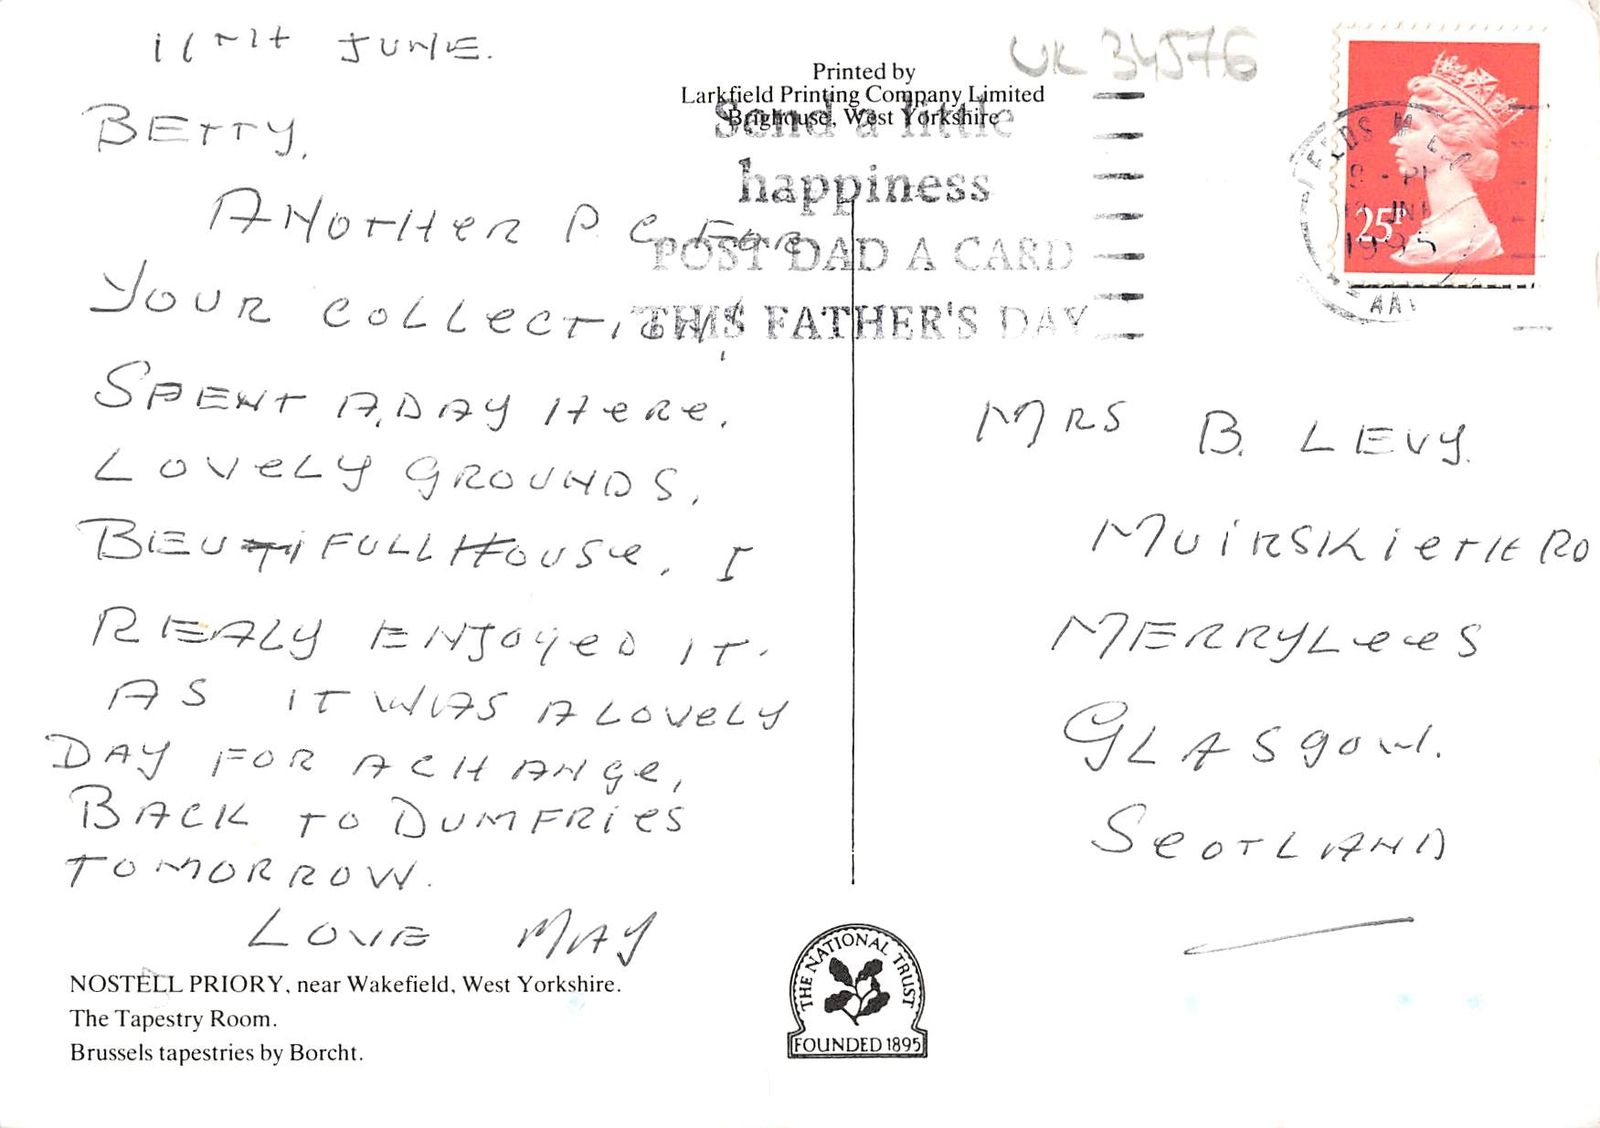 11TH JUNE.
BETTY,
ANOTHER P C FOR
YOUR COLLECTION!
SPENT A DAY HERE,
LOVELY GROUNDS,
BIEUTIFULL HOUSE, I
REALY ENJOYED IT.
AS IT WAS A LOVELY
DAY FOR A CHANGE,
BACK TO DUMFRIES
TOMORROW.
LOVE MAY
NOSTELL PRIORY, near Wakefield, West Yorkshire.
The Tapestry Room.
Brussels tapestries by Borcht.
Printed by
Larkfield Printing Company Limited
Brighouse, West Yorkshire
Send a little
happiness
POST DAD A CARD
THIS FATHER'S DAY
UK 34576
25P
JNE
1995
MRS B. LEVY.
MUIRSKIETH RD
MERRYLEES
GLASGOW.
SCOTLAND
THE NATIONAL TRUST
FOUNDED 1895